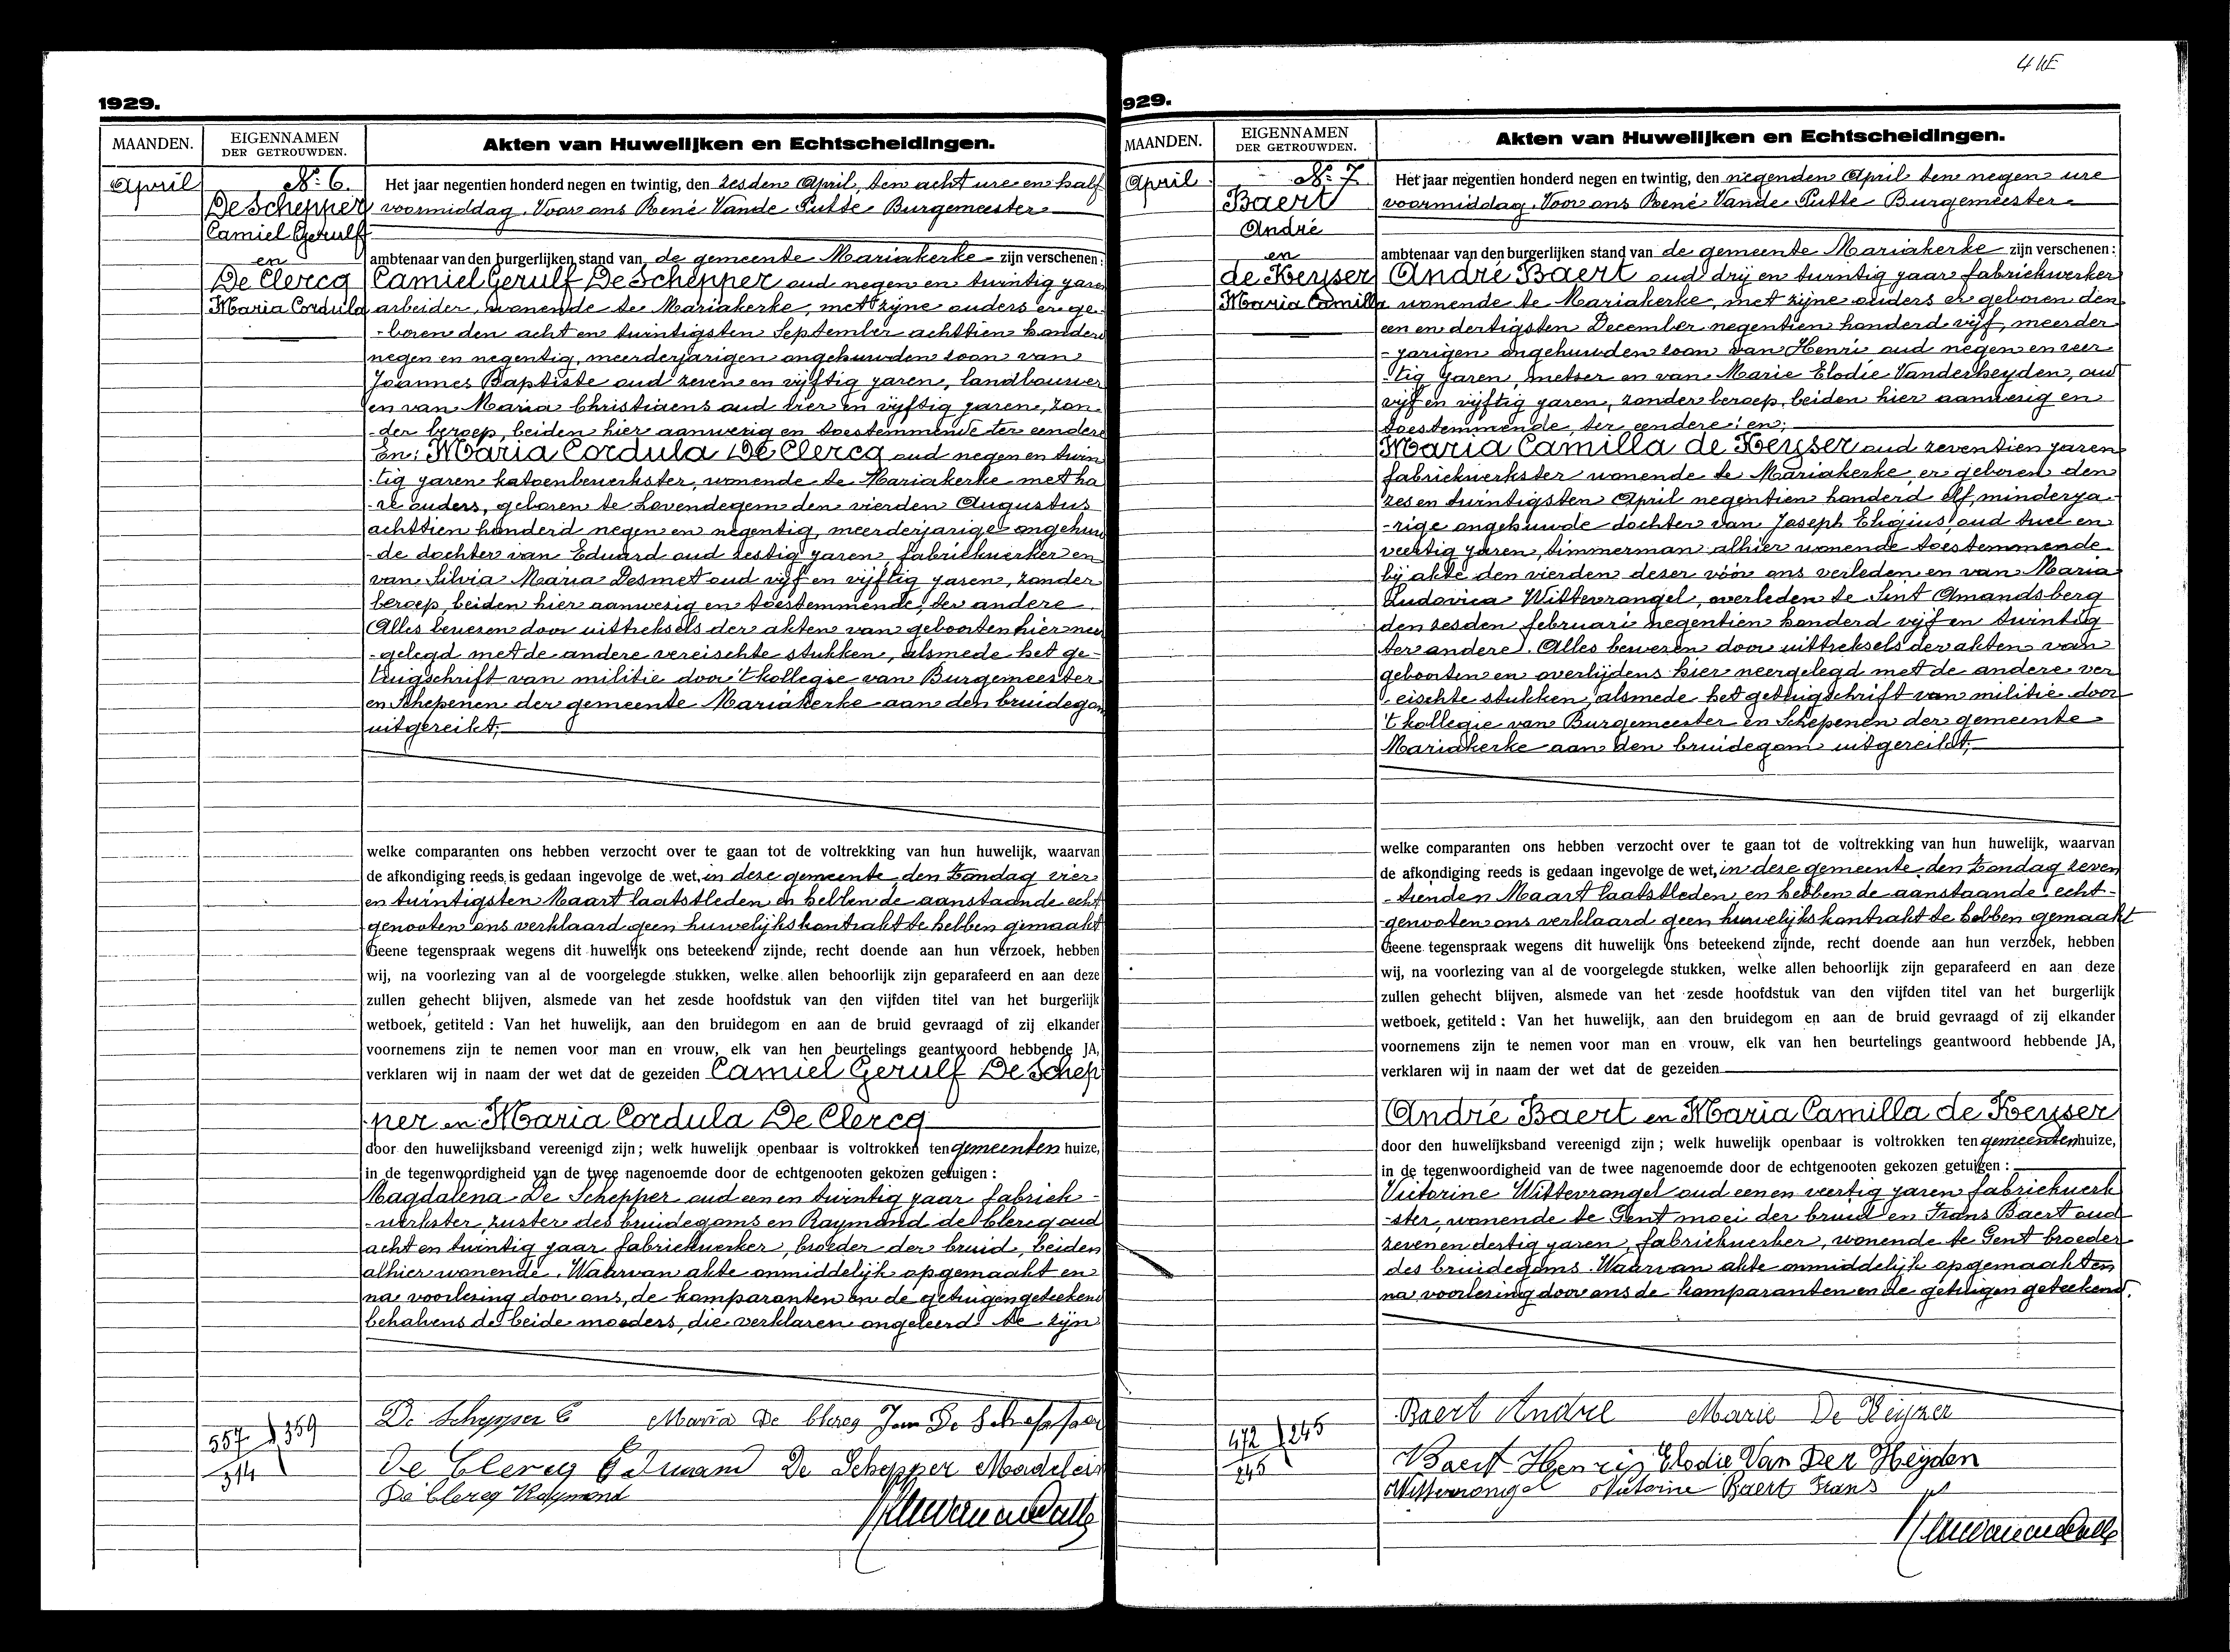 4 WE
1929.
MAANDEN.
EIGENNAMEN
DER GETROUWDEN.
Akten van Huwelijken en Echtscheidingen.
April
No 6.
De Schepper
Camiel Gerulf
en
De Clercq
Maria Cordula
Het jaar negentien honderd negen en twintig, den zesden April, ten acht ure en half
voormiddag. Voor ons René Vande Putte Burgemeester
ambtenaar van den burgerlijken stand van de gemeente Mariakerke zijn verschenen:
Camiel Gerulf De Schepper oud negen en twintig jaren
arbeider, wonende te Mariakerke, met zijne ouders er ge-
-boren den acht en twintigsten September achttien honderd
negen en negentig, meerderjarigen ongehuwden zoon van
Joannes Baptiste oud zeven en vijftig jaren, landbouwer
en van Maria Christiaens oud vier en vijftig jaren, zon-
-der beroep, beiden hier aanwezig en toestemmende ter eendere
En: Maria Cordula De Clercq oud negen en twin
-tig jaren katoenbewerkster, wonende te Mariakerke met ha
-re ouders, geboren te Lovendegem den vierden Augustus
achttien honderd negen en negentig, meerderjarige ongehuw
-de dochter van Eduard oud zestig jaren, fabriekwerker en
van Silvia Maria Desmet oud vijf en vijftig jaren, zonder
beroep, beiden hier aanwezig en toestemmende, ter andere.
Alles bewezen door uittreksels der akten van geboorten hier neer
-gelegd met de andere vereischte stukken, alsmede het ge-
tuigschrift van militie door 't kollegie van Burgemeester
en Schepenen der gemeente Mariakerke aan den bruidegom
uitgereikt;
welke comparanten ons hebben verzocht over te gaan tot de voltrekking van hun huwelijk, waarvan
de afkondiging reeds is gedaan ingevolge de wet, in deze gemeente, den Zondag vier
en twintigsten Maart laatstleden en hebben de aanstaande echt
genooten ons verklaard geen huwelijkskontrakt te hebben gemaakt
Geene tegenspraak wegens dit huwelijk ons beteekend zijnde, recht doende aan hun verzoek, hebben
wij, na voorlezing van al de voorgelegde stukken, welke allen behoorlijk zijn geparafeerd en aan deze
zullen gehecht blijven, alsmede van het zesde hoofdstuk van den vijfden titel van het burgerlijk
wetboek, getiteld : Van het huwelijk, aan den bruidegom en aan de bruid gevraagd of zij elkander
voornemens zijn te nemen voor man en vrouw, elk van hen beurtelings geantwoord hebbende JA,
verklaren wij in naam der wet dat de gezeiden Camiel Gerulf De Schep
per en Maria Cordula De Clercq
door den huwelijksband vereenigd zijn; welk huwelijk openbaar is voltrokken ten gemeenten huize,
in de tegenwoordigheid van de twee nagenoemde door de echtgenooten gekozen getuigen :
Magdalena De Schepper oud een en twintig jaar fabriek-
-werkster, zuster des bruidegoms en Raymond de Clercq oud
acht en twintig jaar fabriekwerker, broeder der bruid, beiden
alhier wonende. Waarvan akte onmiddelijk opgemaakt en
na voorlezing door ons, de komparanten en de getuigen geteekend
behalvens de beide moeders, die verklaren ongeleerd te zijn
557 359
314
De Schepper C Maria De Clercq Jan De Schepper
De Clercq Eduward De Schepper Madelein
De Clercq Raymond
929.
MAANDEN.
EIGENNAMEN
DER GETROUWDEN.
Akten van Huwelijken en Echtscheidingen.
April
No 7
Baert
André
en
de Keyser
Maria Camilla
Het jaar negentien honderd negen en twintig, den negenden April ten negen ure
voormiddag. Voor ons René Vande Putte Burgemeester
ambtenaar van den burgerlijken stand van de gemeente Mariakerke zijn verschenen:
André Baert oud drij en twintig jaar fabriekwerker
wonende te Mariakerke, met zijne ouders er geboren den
een en dertigsten December negentien honderd vijf, meerder
-jarigen ongehuwden zoon van Henri oud negen en veer
-tig jaren, metser en van Marie Elodie Vanderheyden, oud
vijf en vijftig jaren, zonder beroep, beiden hier aanwezig en
toestemmende, ter eendere; en;
Maria Camilla de Keyser oud zeventien jaren
fabriekwerkster wonende te Mariakerke, er geboren den
zes en twintigsten April negentien honderd elf, minderja-
-rige ongehuwde dochter van Joseph Eligius oud twee en
veertig jaren, timmerman alhier wonende toestemmende
bij akte den vierden dezer vóór ons verleden en van Maria
Ludovica Wittevrongel, overleden te Sint Amandsberg
den zesden februari negentien honderd vijf en twintig
ter andere. Alles bewezen door uittreksels der akten van
geboorten en overlijdens hier neergelegd met de andere ver
-eischte stukken, alsmede het getuigschrift van militie door
't kollegie van Burgemeester en Schepenen der gemeente
Mariakerke aan den bruidegom uitgereikt;
welke comparanten ons hebben verzocht over te gaan tot de voltrekking van hun huwelijk, waarvan
de afkondiging reeds is gedaan ingevolge de wet, in deze gemeente den Zondag zeven
-tienden Maart laatstleden en hebben de aanstaande echt-
genooten ons verklaard geen huwelijkskontrakt te hebben gemaakt
Geene tegenspraak wegens dit huwelijk ons beteekend zijnde, recht doende aan hun verzoek, hebben
wij, na voorlezing van al de voorgelegde stukken, welke allen behoorlijk zijn geparafeerd en aan deze
zullen gehecht blijven, alsmede van het zesde hoofdstuk van den vijfden titel van het burgerlijk
wetboek, getiteld : Van het huwelijk, aan den bruidegom en aan de bruid gevraagd of zij elkander
voornemens zijn te nemen voor man en vrouw, elk van hen beurtelings geantwoord hebbende JA,
verklaren wij in naam der wet dat de gezeiden
André Baert en Maria Camilla de Keyser
door den huwelijksband vereenigd zijn ; welk huwelijk openbaar is voltrokken ten gemeenten huize,
in de tegenwoordigheid van de twee nagenoemde door de echtgenooten gekozen getuigen :
Victorine Wittevrongel oud een en veertig jaren fabriekwerk
-ster, wonende te Gent moei der bruid en Frans Baert oud
zeven en dertig jaren, fabriekwerker, wonende te Gent broeder
des bruidegoms. Waarvan akte onmiddelijk opgemaakt en
na voorlezing door ons de komparanten en de getuigen geteekend.
472 245
245
Baert André Marie De Keyzer
Baert Henri Elodie Van Der Heyden
Wittevrongel Victorine Baert Frans